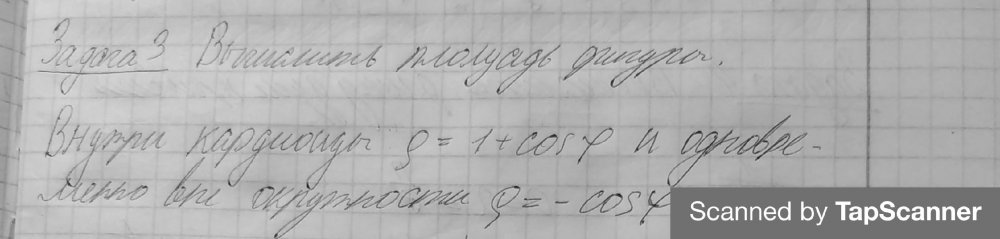 Задача 3 Вычислить площадь фигуры.
Внутри кардиоиды ρ = 1 + cos φ и одновре-
менно вне окружности ρ = - cos φ
Scanned by TapScanner